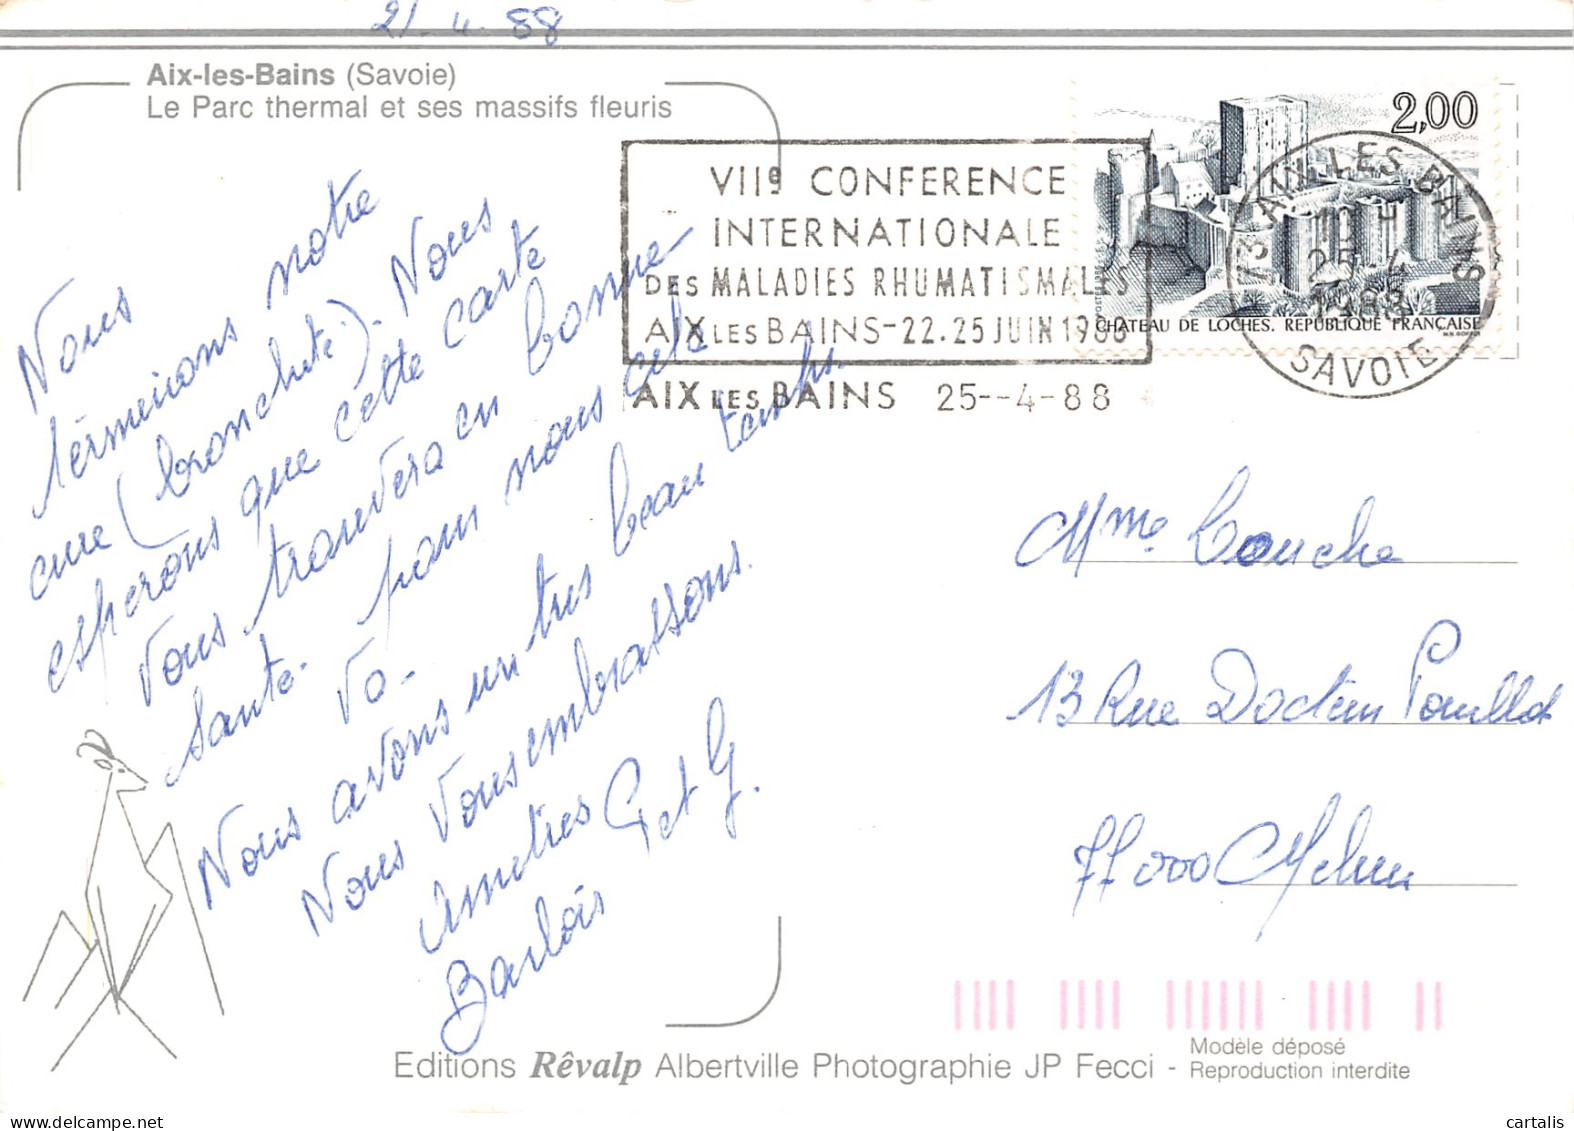 21-4-88
Aix-les-Bains (Savoie)
Le Parc thermal et ses massifs fleuris
2,00
VIIe CONFERENCE
INTERNATIONALE
DES MALADIES RHUMATISMALES
AIX LES BAINS-22.25 JUIN 1988
AIX LES BAINS 25--4-88
CHATEAU DE LOCHES. REPUBLIQUE FRANÇAISE
73 AIX LES BAINS
25-4
1988
SAVOIE
Nous
terminons notre
cure (bronchite). Nous
esperons que cette carte
vous trouvera en bonne
santé. pour nous cela
va.
Nous avons un très beau temps.
Nous vous embrassons.
Amitiés G et G.
Barlois
Mme Couche
13 Rue Docteur Pouillot
77000 Melun
Editions Rêvalp Albertville Photographie JP Fecci -
Modèle déposé
Reproduction interdite
cartalis